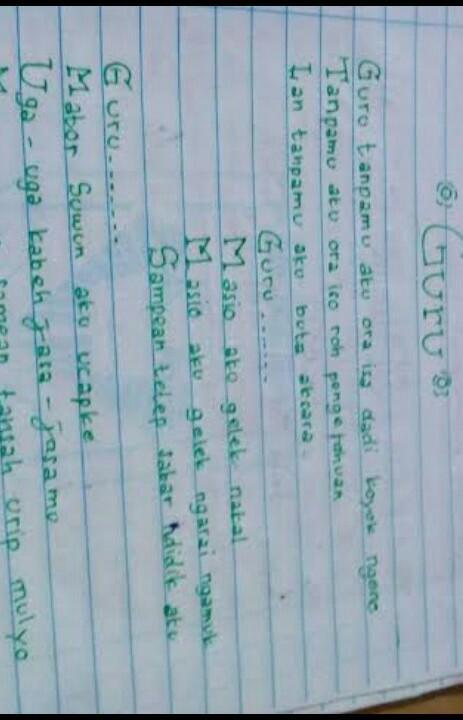 Guru
Guru tanpamu aku ora iso dadi koyok ngene
Tanpamu aku ora iso roh pengetahuan
Lan tanpamu aku buta aksara.
Guru.......
Masio aku gelek nakal
Masio aku gelek ngarai ngamuk
Sampean tetep sabar ndidik aku
Guru.......
Mabor Suwun aku ucapke
Uga - uga kabeh jasa - jasamu
sampean tansah urip mulyo